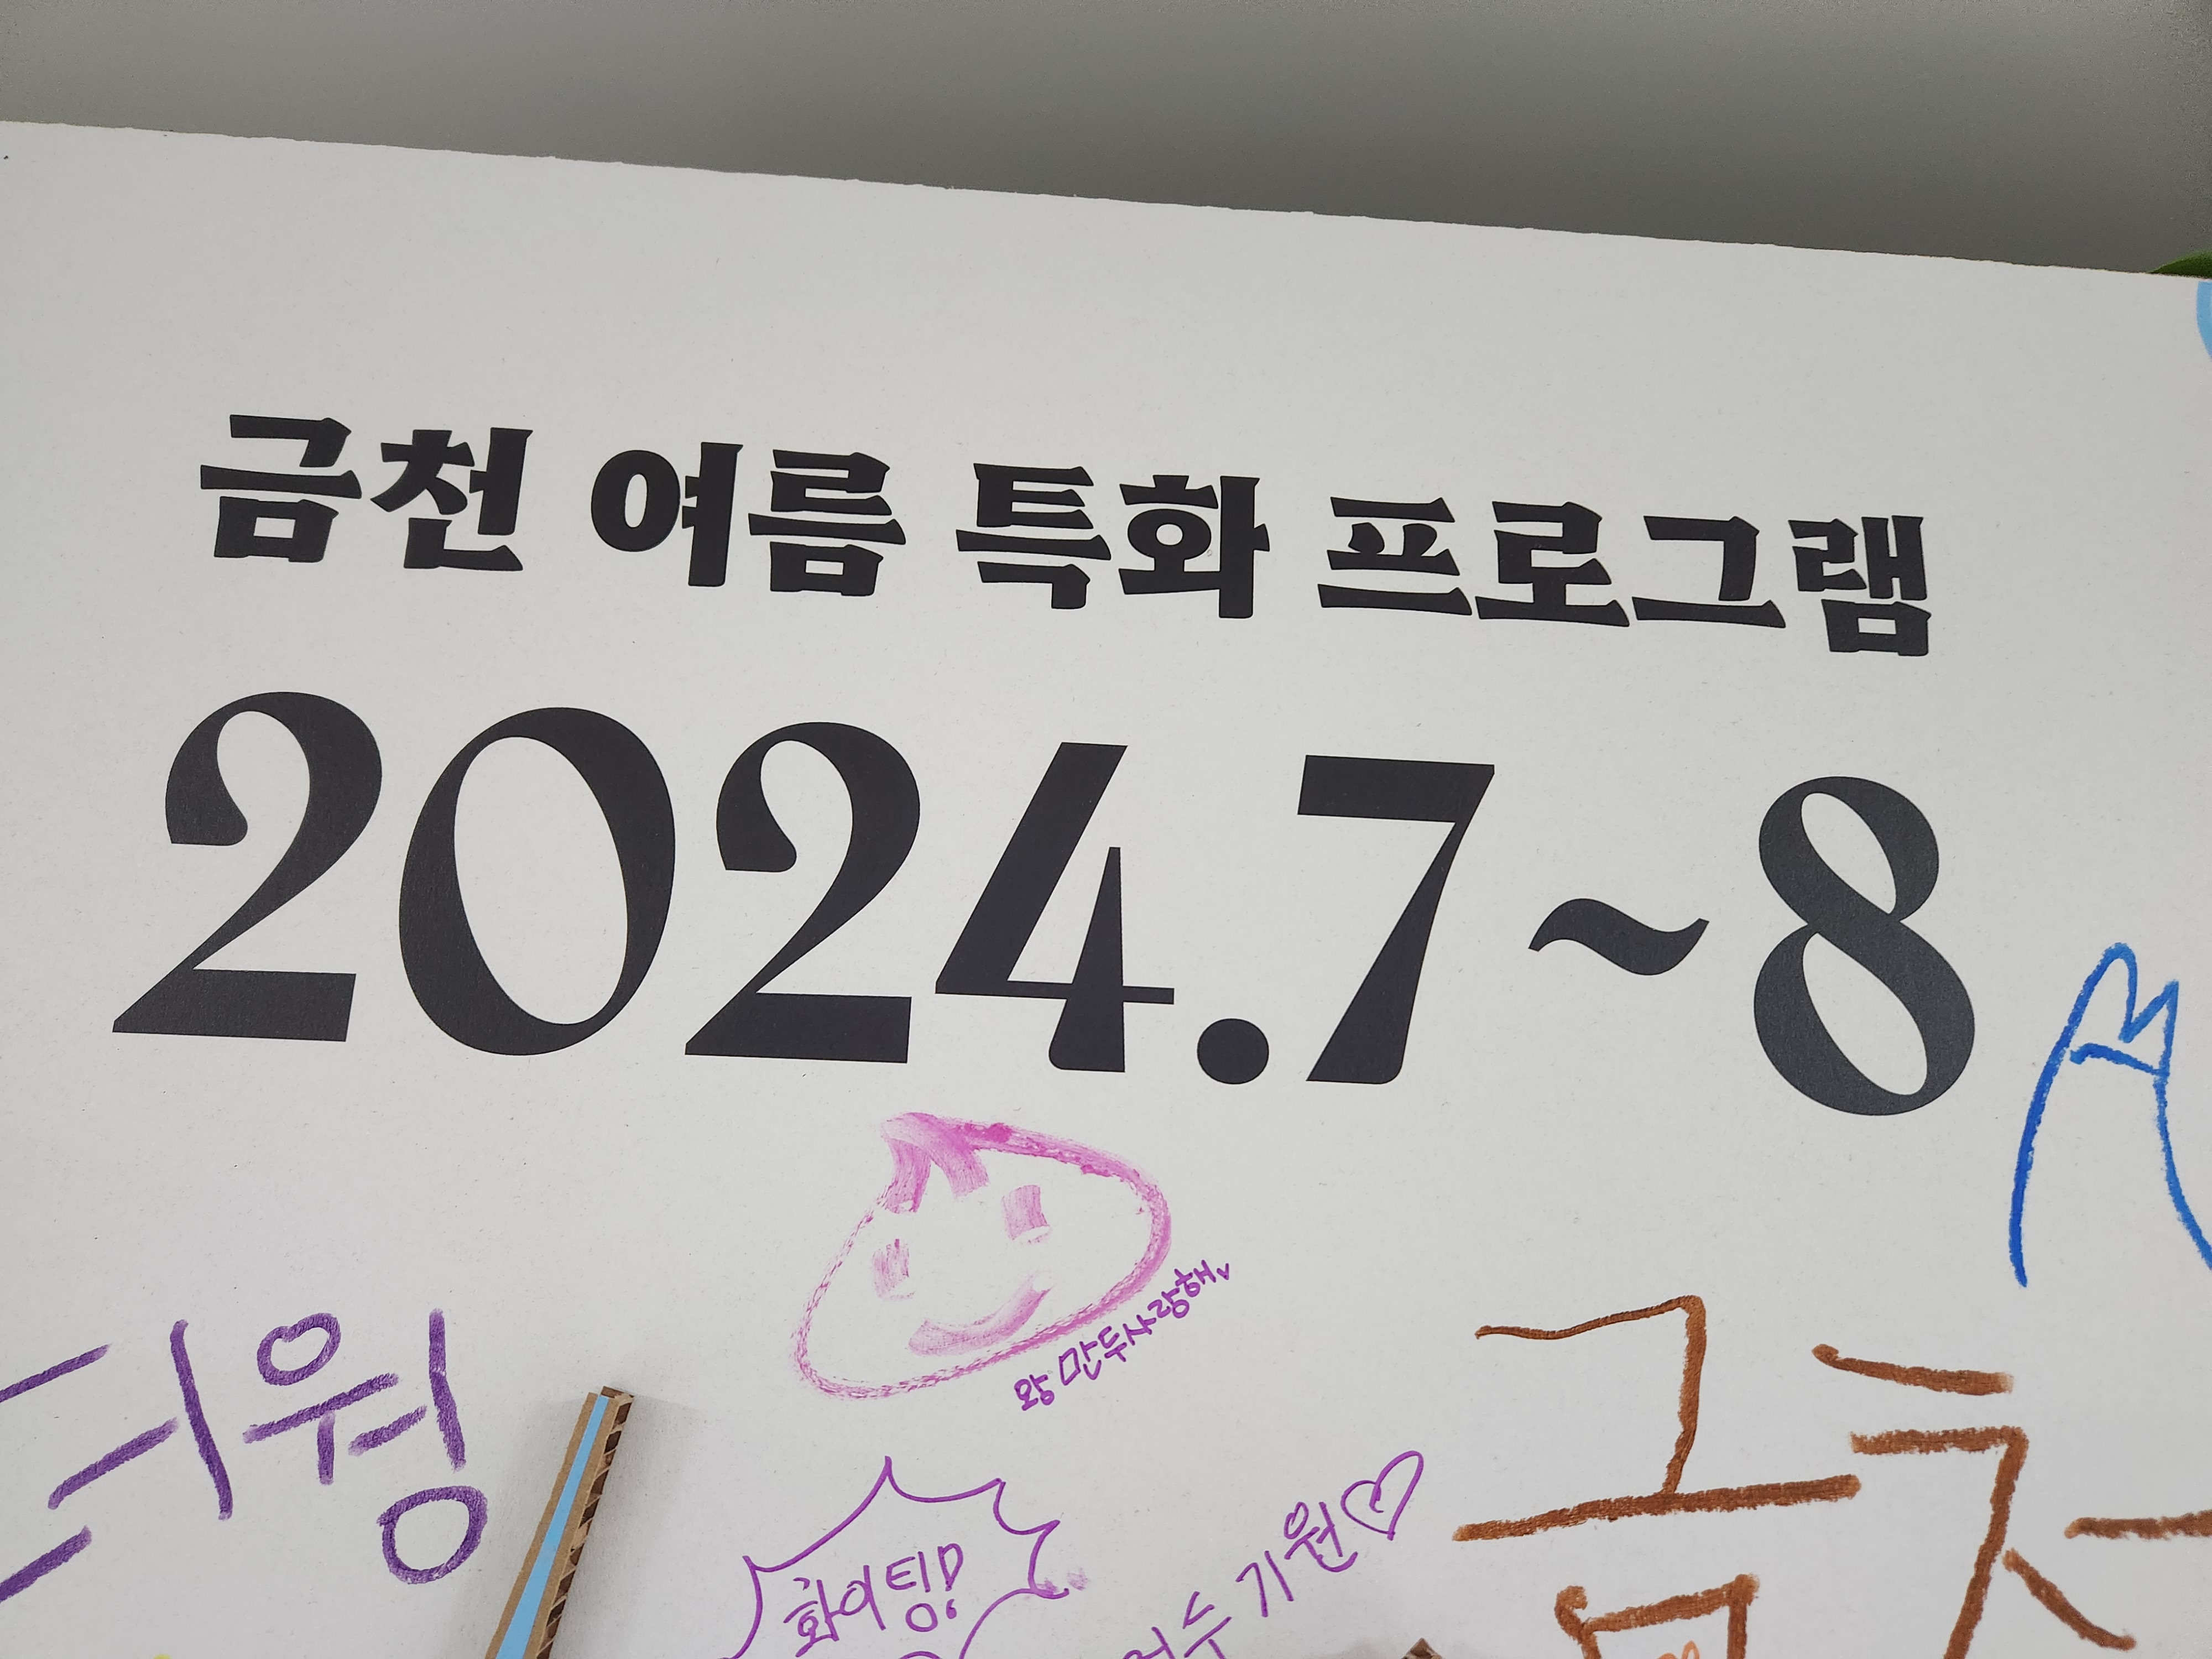 금천 여름 특화 프로그램
2024.7~8
왕 만두사랑해
더웡
화이팅!
기원♡